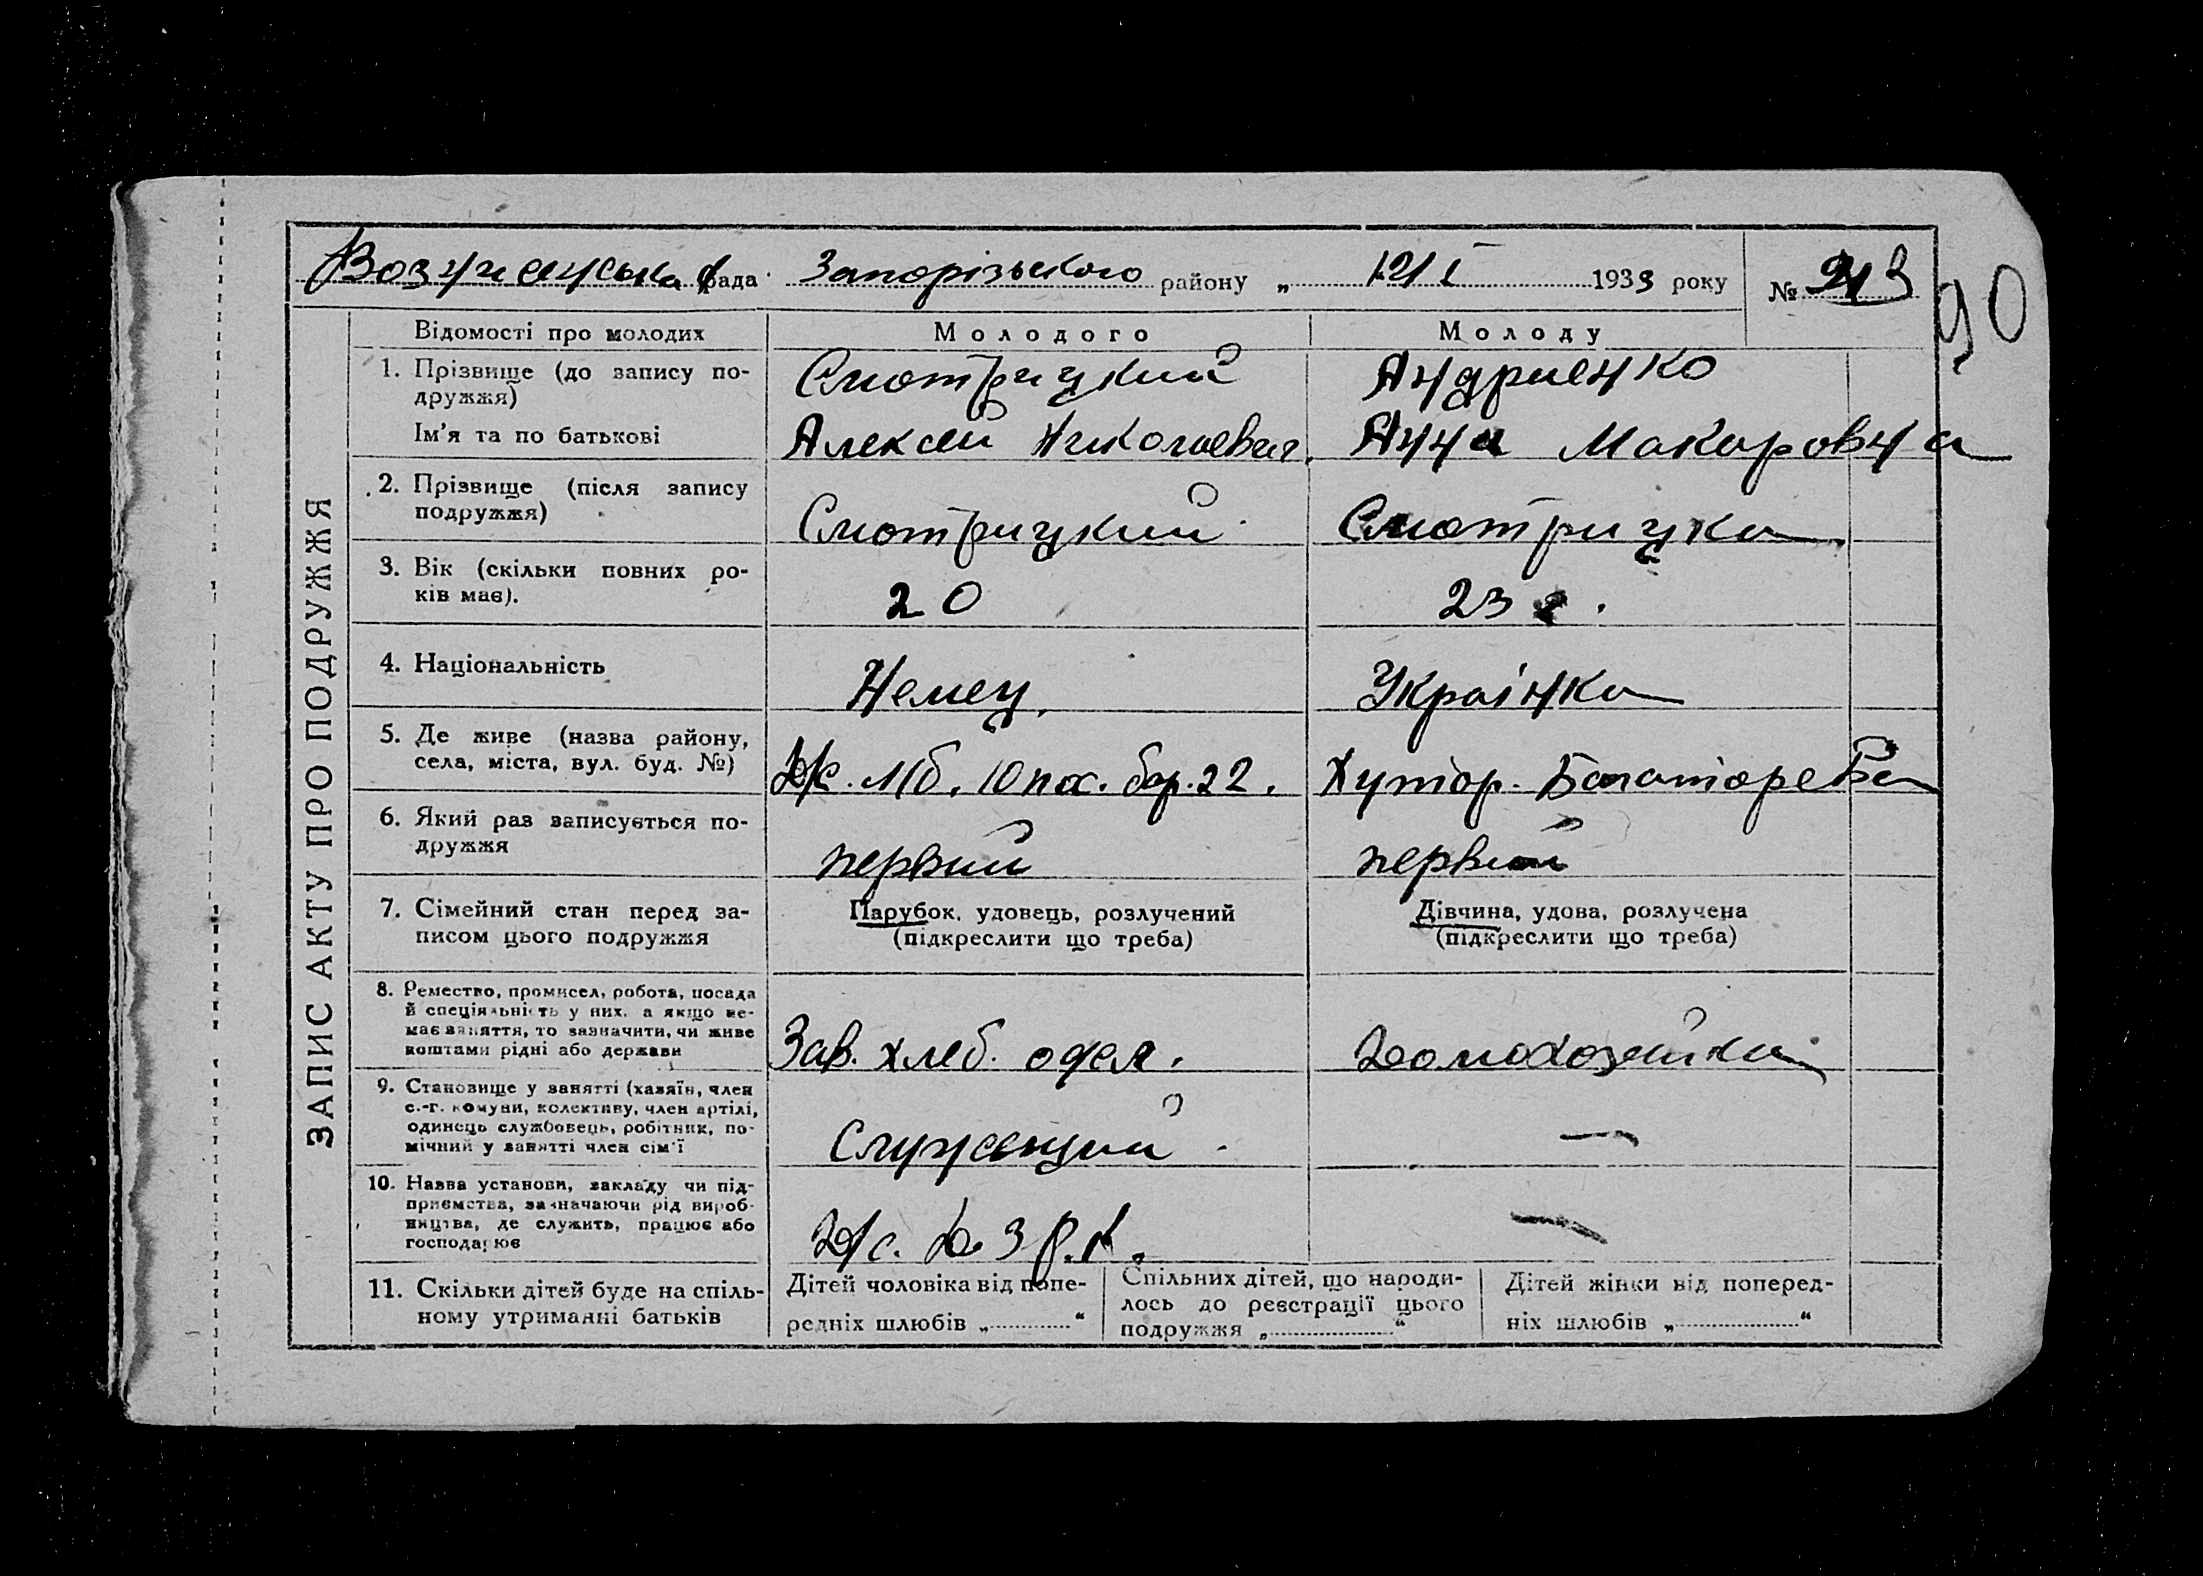 Вознесенська рада Запорізьского району „ 12/I 1933 року № 213
90
ЗАПИС АКТУ ПРО ПОДРУЖЖЯ
Відомості про молодих Молодого Молоду
1. Прізвище (до запису по-
дружжя) Смотрицкий Андриенко
Ім'я та по батькові Алексей Николаевич. Анна Макаровна
2. Прізвище (після запису
подружжя) Смотрицкий Смотрицка
3. Вік (скільки повних ро-
ків має). 20 23 г.
4. Національність Немец. Українка
5. Де живе (назва району,
села, міста, вул. буд. №) 10 пос. бар. 22. Хутор.
6. Який раз записується по-
дружжя первий первий
7. Сімейний стан перед за-
писом цього подружжя
Парубок, удовець, розлучений
(підкреслити що треба)
Дівчина, удова, розлучена
(підкреслити що треба)
8. Ремество, промисел, робота, посада
й спеціяльність у них, а якщо не-
має заняття, то зазначити, чи живе
коштами рідні або держави
Зав. хлеб. отдел. Домохозяйка
9. Становище у занятті (хазяїн, член
с.-г. комуни, колективу, член артілі,
одинець службовець, робітник, по-
мічний у занятті член сім'ї
Служащий —
10. Назва установи, закладу чи під-
приємства, зазначаючи рід вироб-
ництва, де служить, працює або
господарює
—
11. Скільки дітей буде на спіль-
ному утриманні батьків
Дітей чоловіка від попе-
редніх шлюбів „ “
Спільних дітей, що народи-
лось до реєстрації цього
подружжя „ “
Дітей жінки від поперед-
ніх шлюбів „ “